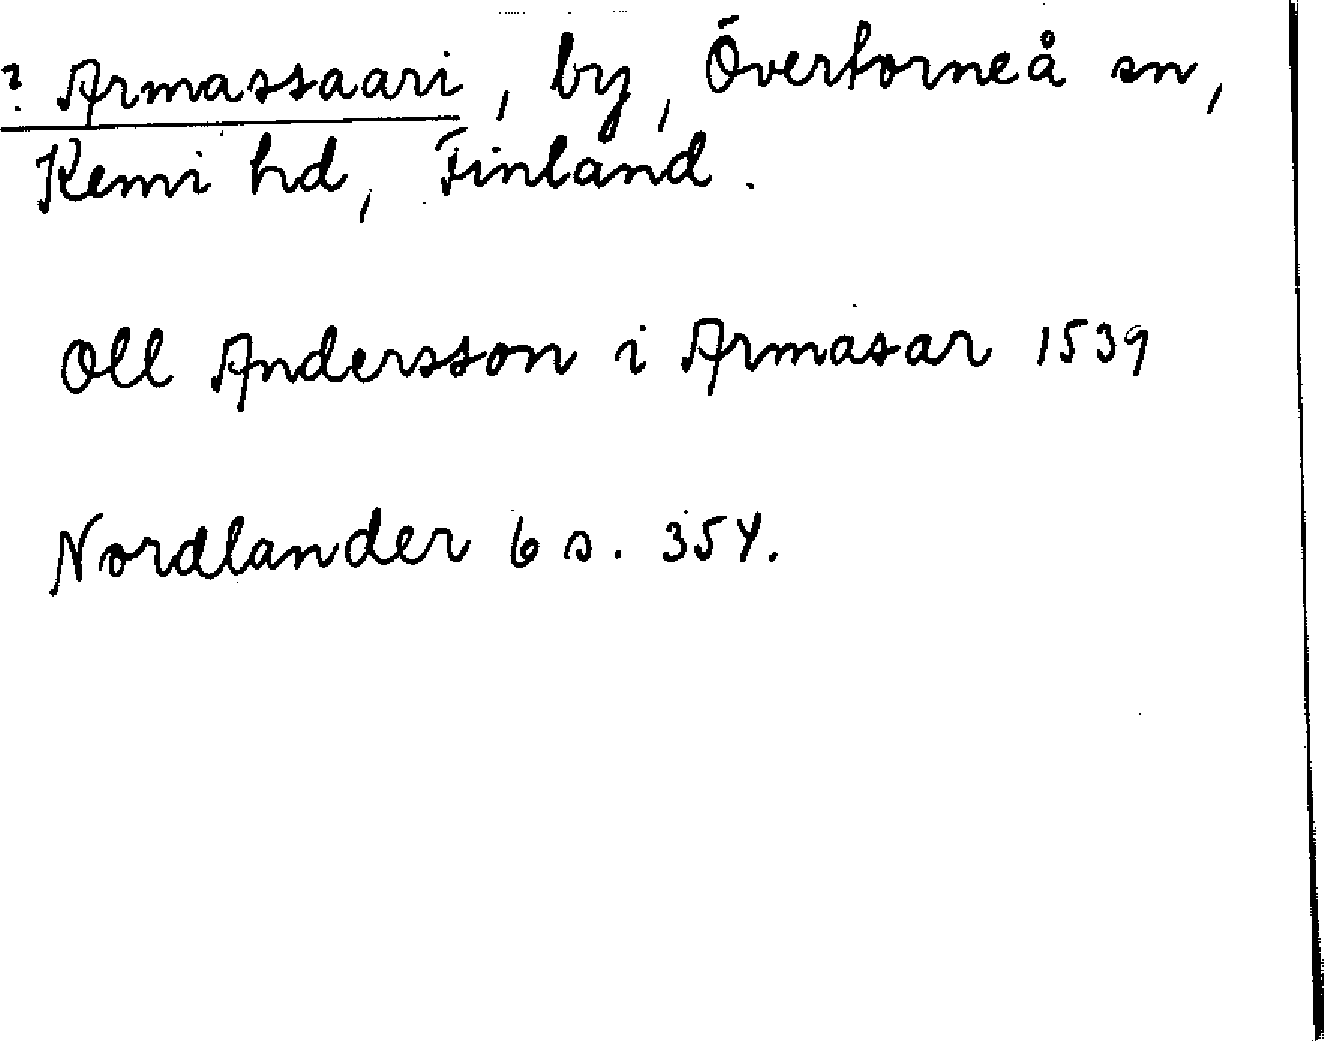 ? Armassaari, by, Övertorneå sn,
Kemi hd, Finland.
Oll Andersson i Armasar 1539
Nordlander 6 s. 354.